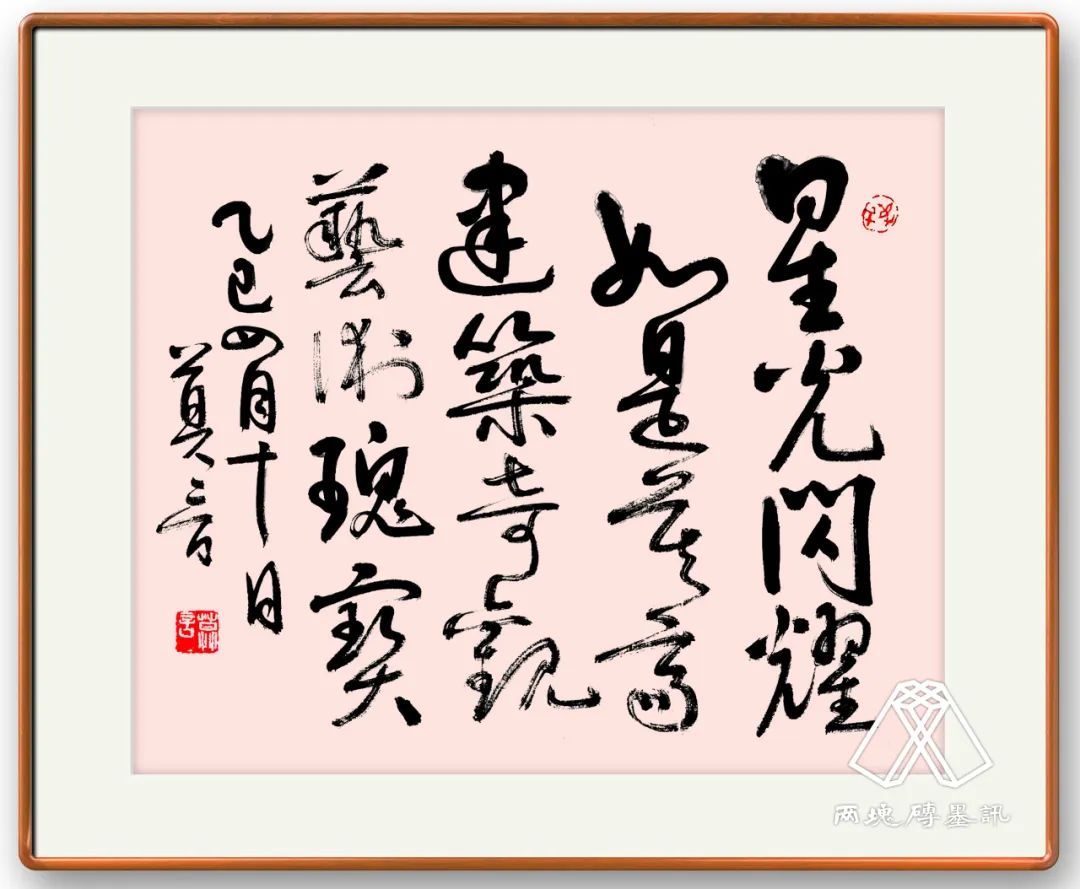 星光閃耀
如是莫高
建築奇觀
藝術瑰寶
乙巳四月十日
莫言
两塊磚墨訊